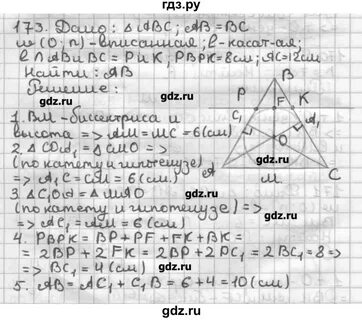 173. Дано: △ABC; AB=BC
w(O; r)-вписанная; b-касат-ая;
b∩AB и BC = P и K; PBPK=8см; AC=12см
Найти: AB
Решение:
1. BM - биссектриса и
высота => AM=MC=6(см)
2. △COA₁=△CMO =>
(по катету и гипотенузе)
=> A₁C=CM=6(см.)
3. △C₁OA=△MAO
(по катету и гипотенузе) =>
=> AC₁=AM=6(см)
4. PBPK=BP+PF+FK+BK=
=2BP+2PF=2BP+2PC₁=2BC₁=8=>
=> BC₁=4(см)
5. AB=AC₁+C₁B=6+4=10(см)
B
P
F
K
C₁
A₁
O
A
M
C
gdz.ru
gdz.ru
gdz.ru
gdz.ru
gdz.ru
gdz.ru
gdz.ru